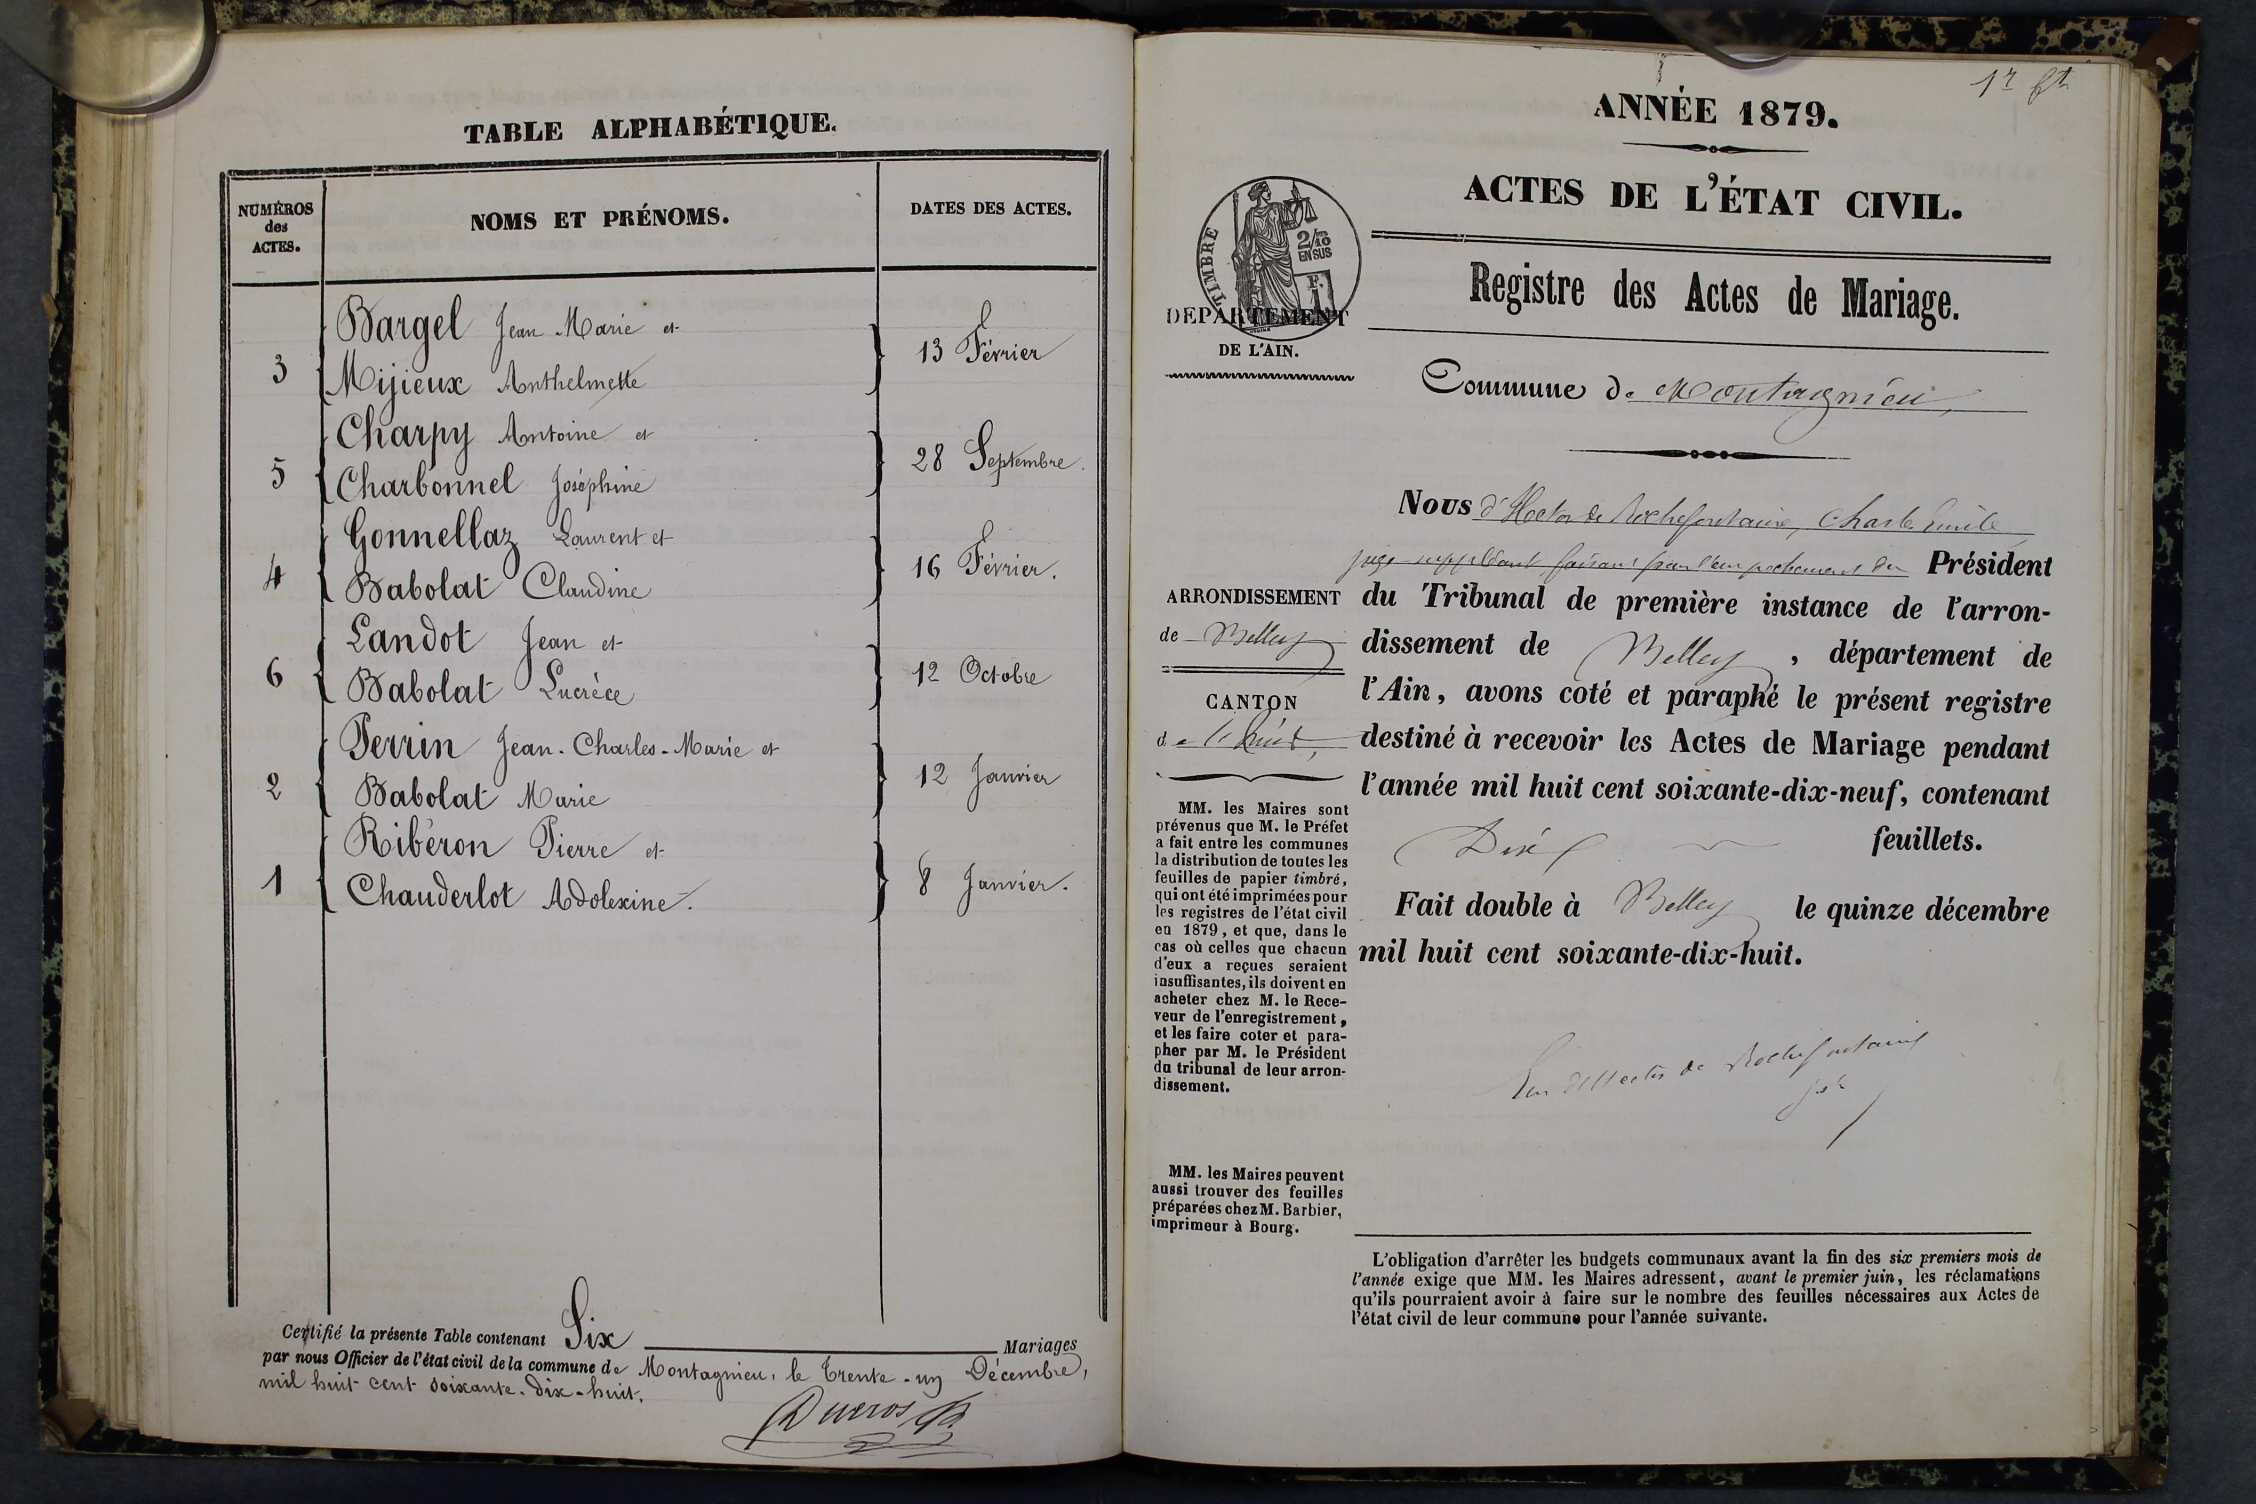 TABLE ALPHABÉTIQUE.
NUMÉROS
des
ACTES.
NOMS ET PRÉNOMS.
DATES DES ACTES.
Bargel Jean Marie et
3 Mijieux Anthelmette 13 Février
Charpy Antoine et
5 Charbonnel Joséphine 28 Septembre.
Gonnellaz Laurent et
4 Babolat Claudine 16 Février.
Landot Jean et
6 Babolat Lucrèce 12 Octobre
Perrin Jean-Charles-Marie et
2 Babolat Marie 12 Janvier
Ribéron Pierre et
1 Chauderlot Adolexine. 8 Janvier.
Certifié la présente Table contenant Six Mariages
par nous Officier de l'état civil de la commune de Montagnieu, le trente-un Décembre,
mil huit cent soixante-dix-huit.
Ducros
1er ft
ANNÉE 1879.
ACTES DE L'ÉTAT CIVIL.
TIMBRE
2/10
EN SUS
F.
1
DÉPARTEMENT
DE L'AIN.
Registre des Actes de Mariage.
Commune de Montagnieu,
ARRONDISSEMENT
de Belley
CANTON
MM. les Maires sont
prévenus que M. le Préfet
a fait entre les communes
la distribution de toutes les
feuilles de papier timbré,
qui ont été imprimées pour
les registres de l'état civil
en 1879, et que, dans le
cas où celles que chacun
d'eux a reçues seraient
insuffisantes, ils doivent en
acheter chez M. le Rece-
veur de l'enregistrement,
et les faire coter et para-
pher par M. le Président
du tribunal de leur arron-
dissement.
MM. les Maires peuvent
aussi trouver des feuilles
préparées chez M. Barbier,
imprimeur à Bourg.
Nous d'Hector de Rochefontaine, Charles Emile
juge suppléant faisant pour l'empêchement du Président
du Tribunal de première instance de l'arron-
dissement de Belley, département de
l'Ain, avons coté et paraphé le présent registre
destiné à recevoir les Actes de Mariage pendant
l'année mil huit cent soixante-dix-neuf, contenant
Dix feuillets.
Fait double à Belley le quinze décembre
mil huit cent soixante-dix-huit.
d'Hector de Rochefontaine
L'obligation d'arrêter les budgets communaux avant la fin des six premiers mois de
l'année exige que MM. les Maires adressent, avant le premier juin, les réclamations
qu'ils pourraient avoir à faire sur le nombre des feuilles nécessaires aux Actes de
l'état civil de leur commune pour l'année suivante.